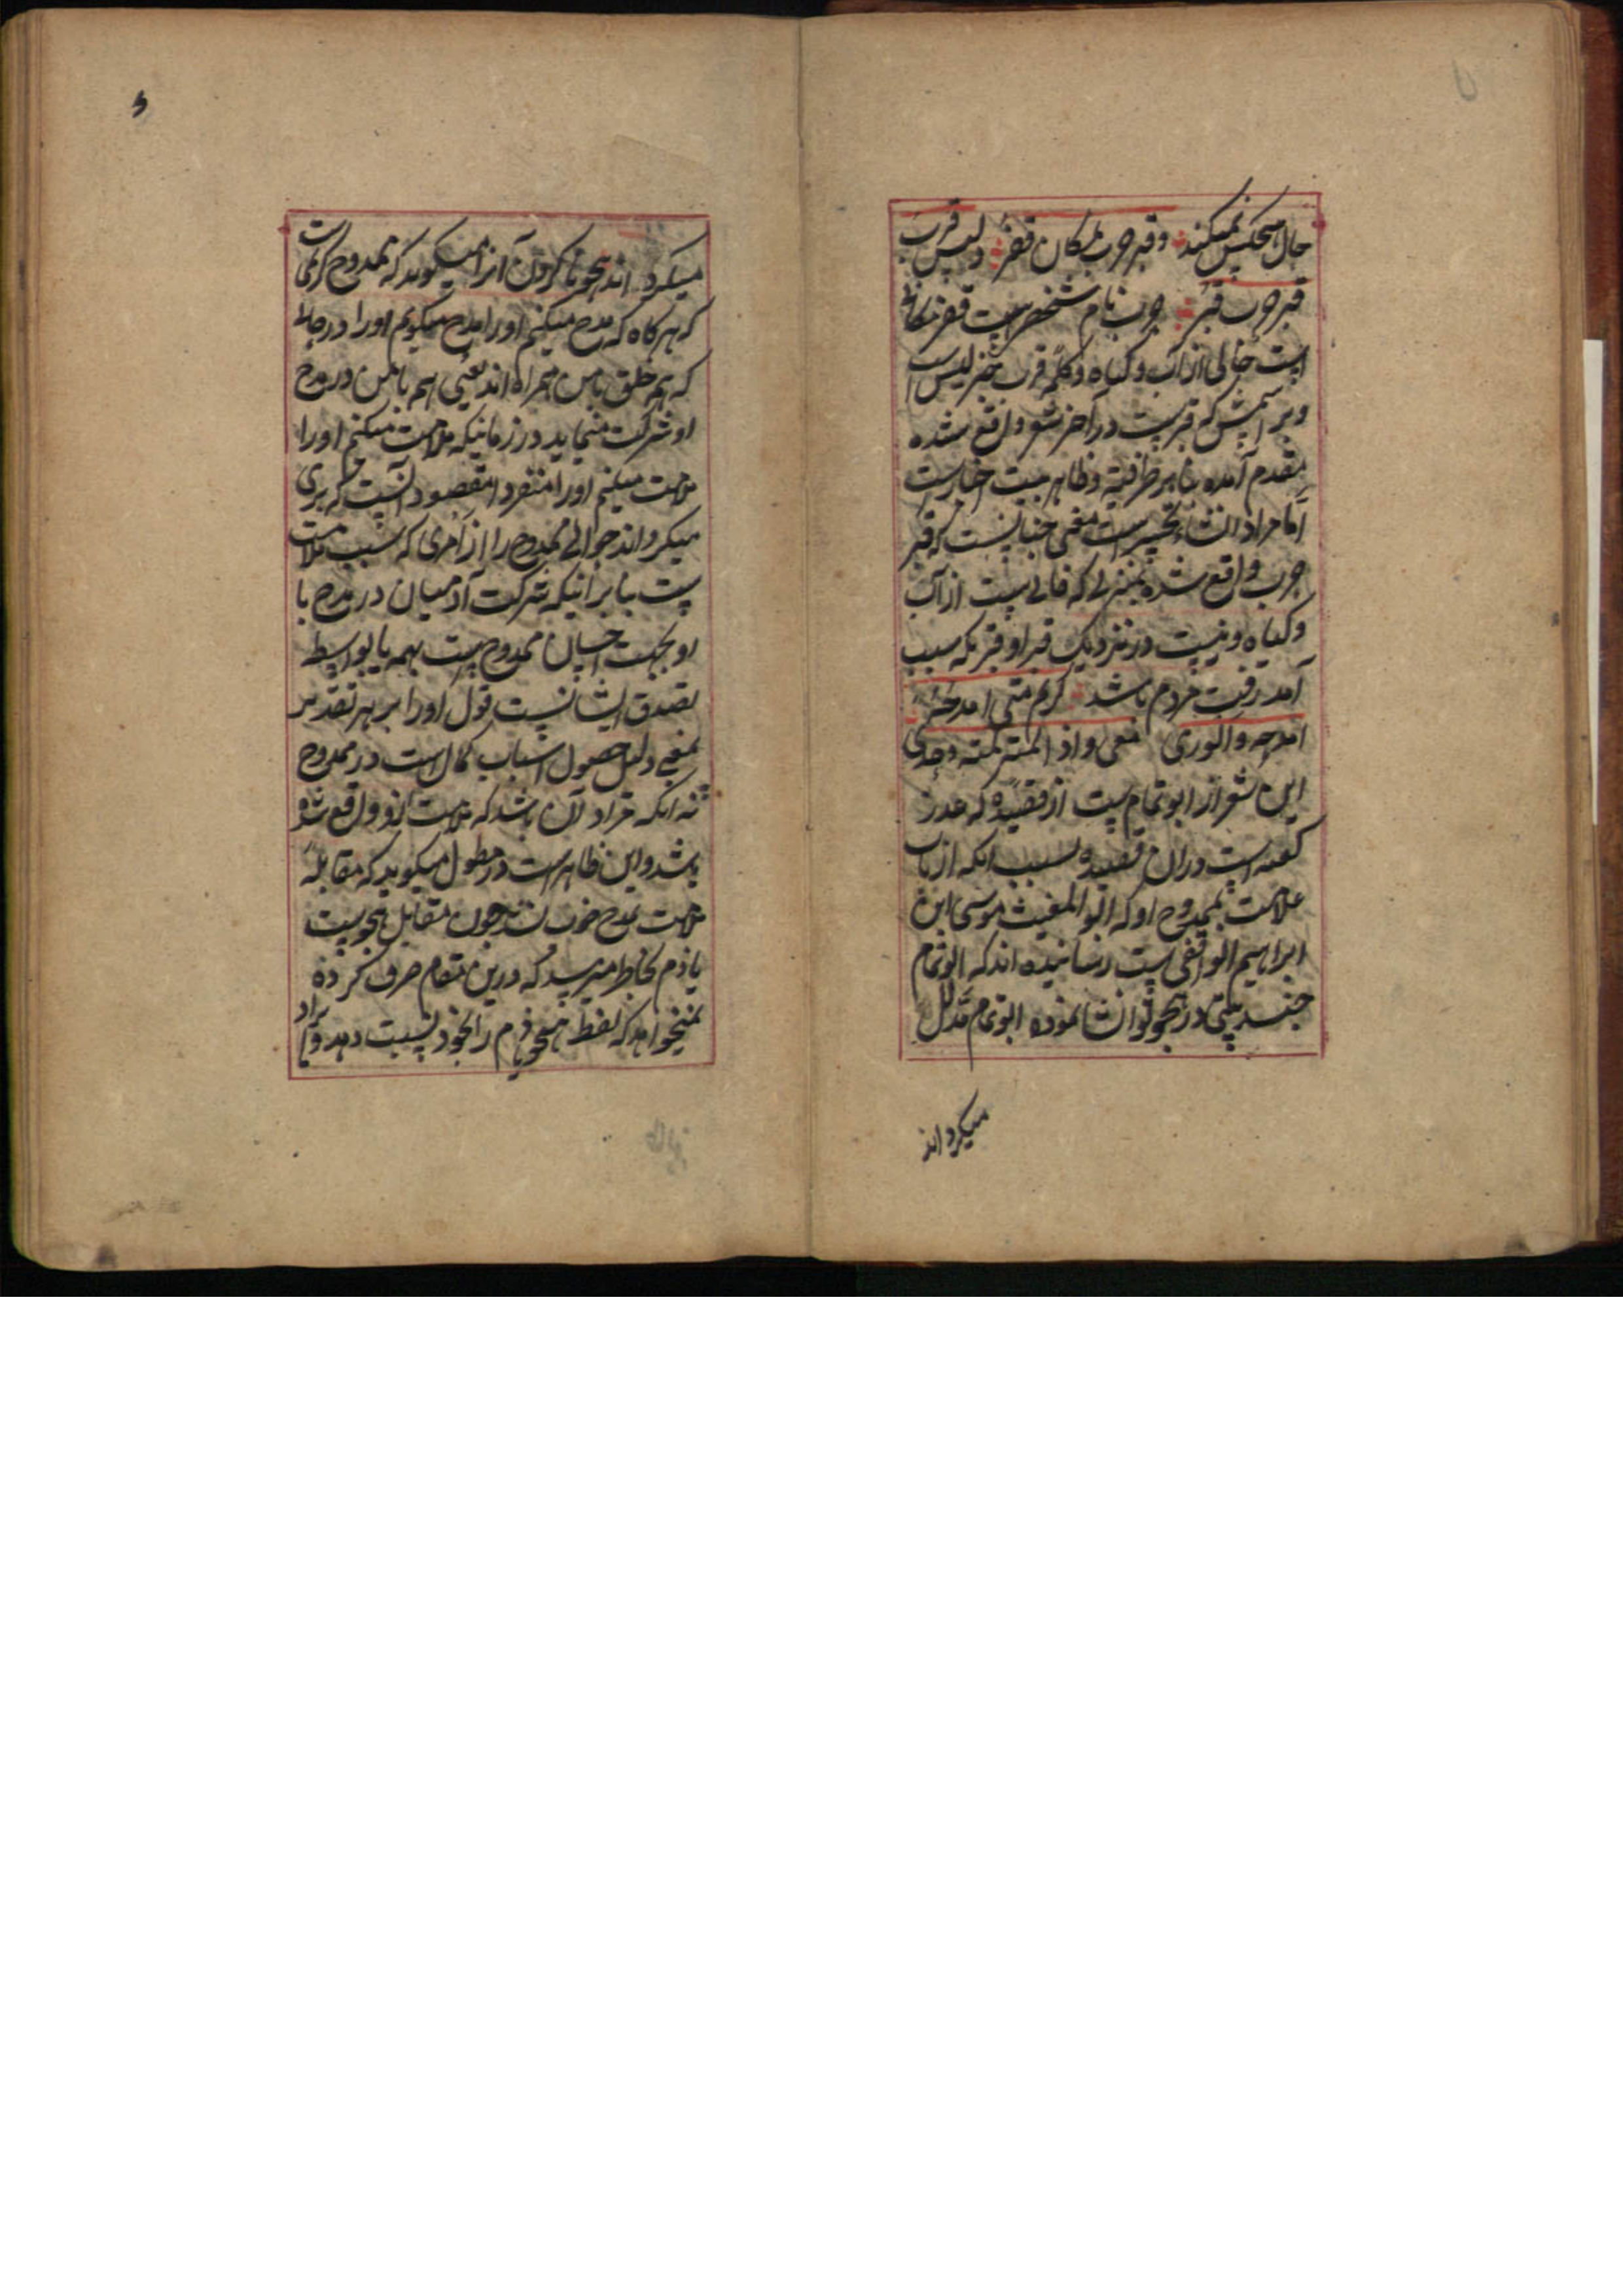 حال هیچکس نمیکند وقبر حرب بمکان قفر ولیس قرب
قبر حرب قبر حرب نام شخصیست قفر مکانی
است خالی از آب و کیاه و کلمه قرب خبر لیس است
و بر اسمش که قبرست در آخر شعر واقع شده
مقدم آمده بنابر ظرفیة و ظاهر بیت اخبارست
اما مراد انشاء تحسیر است معنی چنانست که قبر
حرب واقع شده بمنزلی که خالی ست از آب
و کیاه و نیست در نزدیک قبر او قبر بکه سبب
آمد رفت مردم باشد کریم متی امدحه
امدحه والوری معی و اذا لمته لمته وحدی
این شعر از ابو تمام ست از قصیده که عذر
کفته است دران قصیده بسبب انکه از باب
ملامت بممدوح او که ابو المغیث موسی ابن
ابراهیم الوافقی ست رسانیده اند که ابو تمام
چند بیتی در هجو تو انشا نموده ابو تمام مدلل
میکرداند
میکرد اند هجو نا کردن آنرا میکوید که ممدوح کریمی است
که هر کاه که مدح میکنم اورا مدح میکویم اورا در حالی
که هم خلق با من همراه اند یعنی هم با من در مدح
او شرکت مینماید در زمانیکه ملامت میکنم اورا
ملامت میکنم اورا منفرد مقصود آنست که بری
میکرداند حوالی ممدوح را از امری که سبب ملامت
ست بنا برانیکه شرکت آدمیان در مدح با
او بجهت احسان ممدوح ست بهمه یا بواسطه
تصدق ایشانست قول اورا بر هر تقدیر
بمعنی دلیل حصول اسباب کمال است در ممدوح
نه انکه مراد آن باشد که ملامت ازو واقع شده
باشد و این ظاهر است در مطول میکوید که مقابله
ملامت بمدح خوب نشد چون مقابل هجوست
یا ذم بخاطر میرسد که درین مقام صرف کرده
نمیخواهد که لفظ هجو یا ذم را بخود نسبت دهد و ایراد